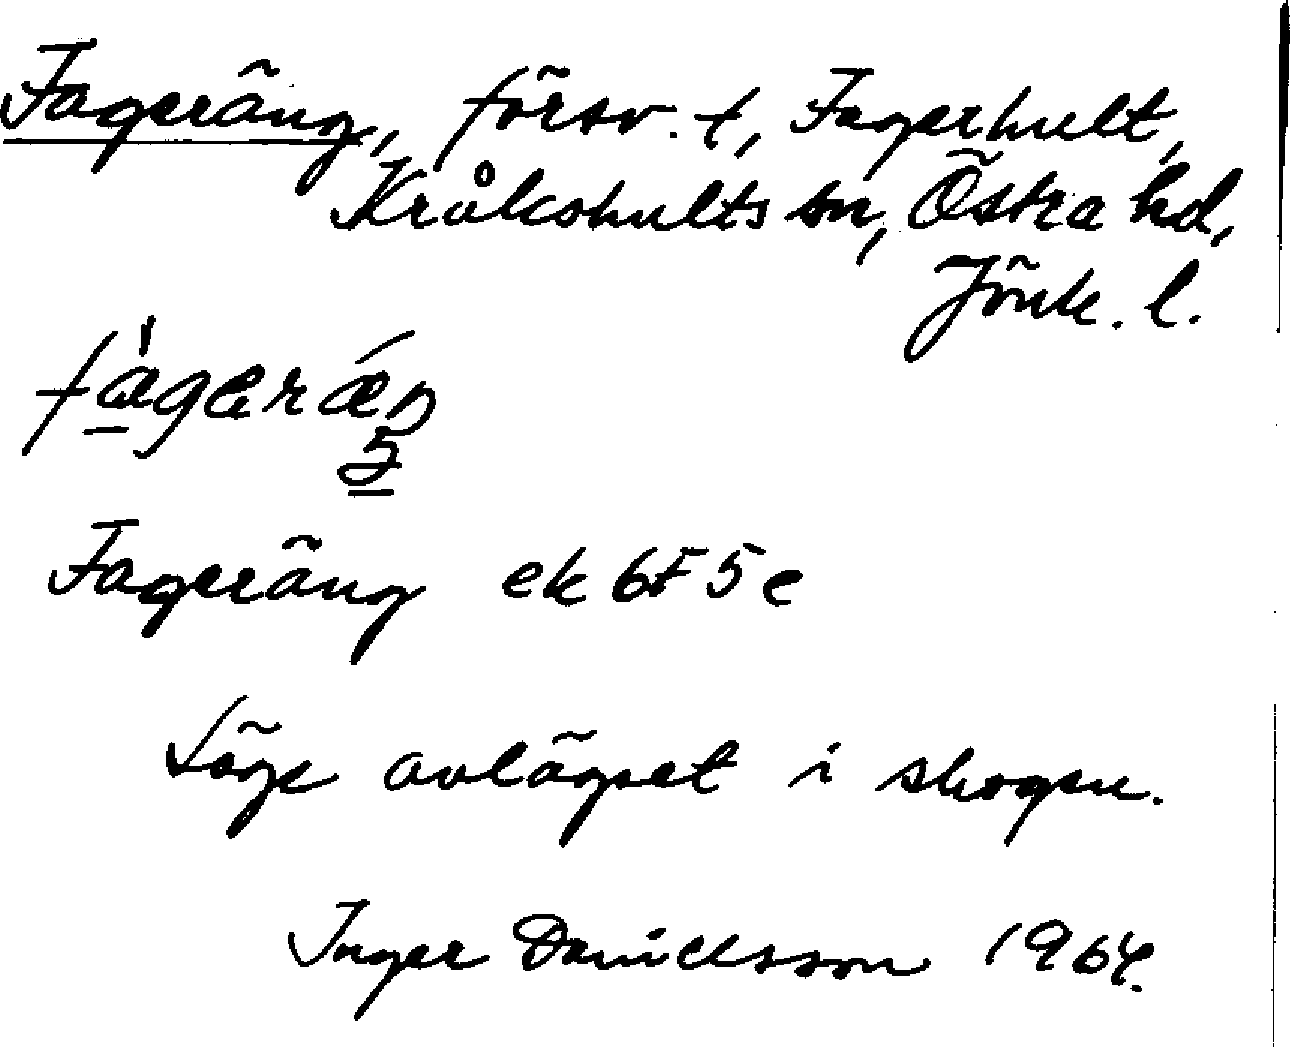 Fageräng, försv. t, Fagerhult,
Kråkshults sn, Östra hd,
Jönk. l.
fàgəræ´ŋ
5
Fageräng ek 6F 5e
Läge avlägset i skogen.
Inger Danielsson 1964.